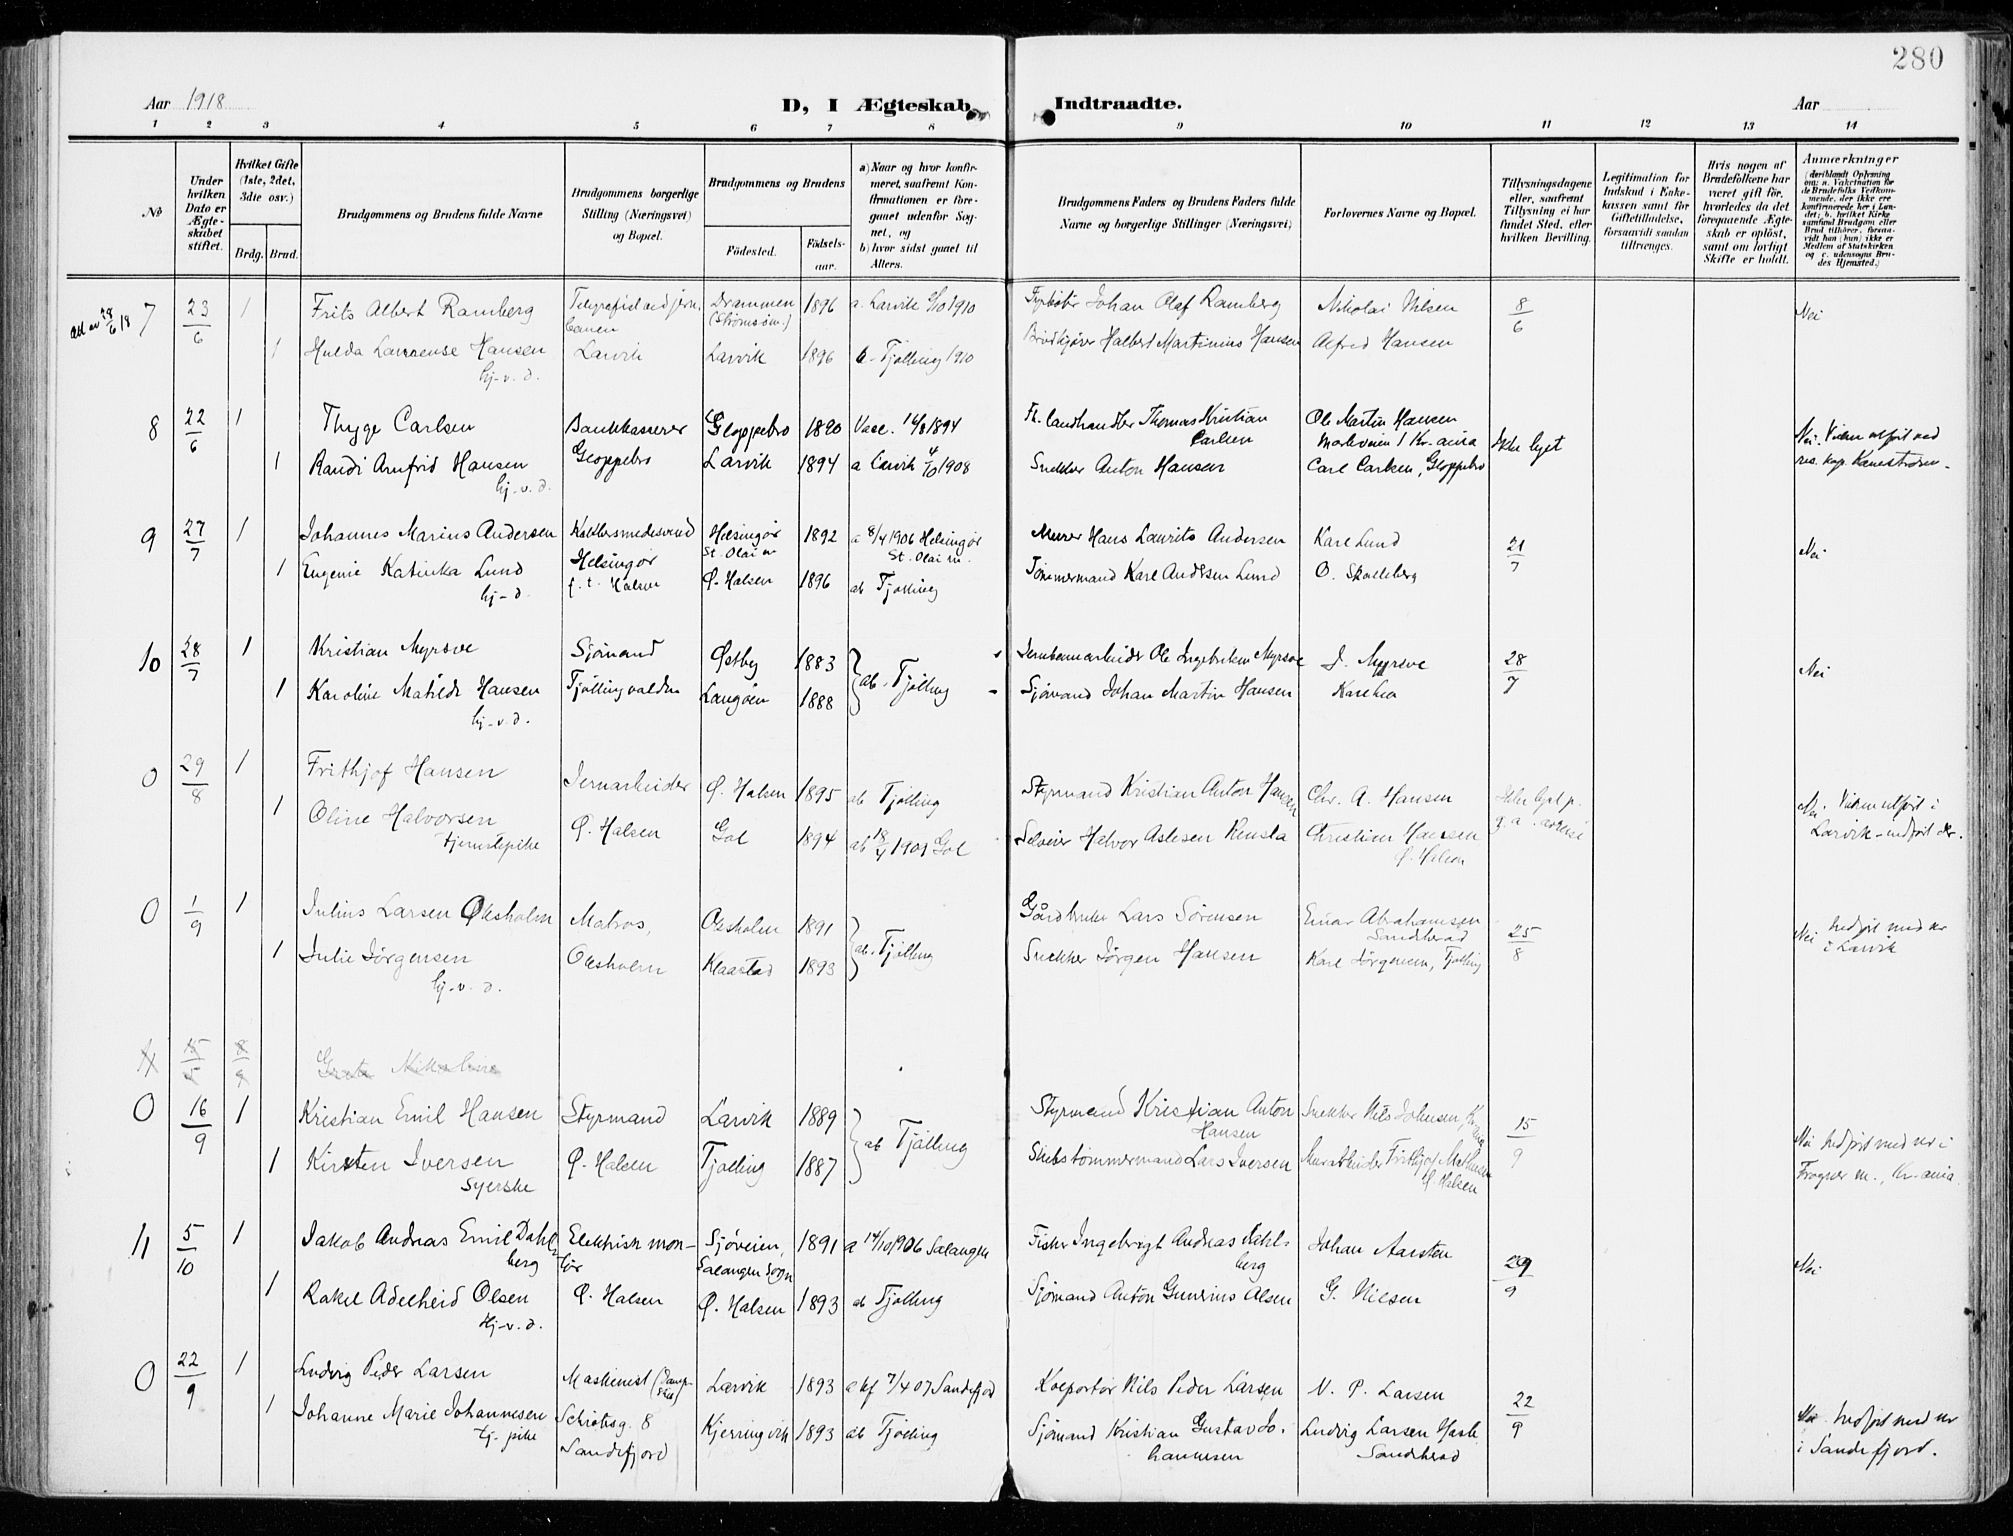 280
Aar 1918
D, I Ægteskab
Indtraadte.
Aar
1 2 3 4 5 6 7 8 9 10 11 12 13 14
No
Under hvilken Dato er Ægteskabet stiftet.
Hvilket Gifte (1ste, 2det, 3die osv.)
Brdg. Brud.
Brudgommens og Brudens fulde Navne
Brudgommens borgerlige Stilling (Næringsvei) og Bopæl.
Brudgommens og Brudens
Fødested. Fødselsaar.
a) Naar og hvor konfirmeret, saafremt Konfirmationen er foregaaet udenfor Sognet, og
b) hvor sidst gaaet til Alters.
Brudgommens Faders og Brudens Faders fulde Navne og borgerlige Stillinger (Næringsvei)
Forlovernes Navne og Bopæl.
Tillysningsdagene eller, saafremt Tillysning ei har fundet Sted, efter hvilken Bevilling.
Legitimation for Indskud i Enkekassen samt for Giftetilladelse, forsaavidt saadan tiltrænges.
Hvis nogen af Brudefolkene har været gift før, hvorledes da det foregaaende Ægteskab er opløst, samt om lovligt Skifte er holdt.
Anmærkninger
7 23/6 1 Frits Albert Ramberg
Drammen (Strømsøn.) 1896 a. Larvik 1910
Johan Olaf Ramberg Nikolai Nilsen 8/6 Nei
1 Hulda Laurense Hansen hj. v. d. Larvik Larvik 1896 b. Tjølling 1910
Halbert Martinius Hansen Alfred Hansen
8 22/6 1 Thygge Carlsen Bankkasserer Gloppebro 1890
Landhandler Thomas Kristian Carlsen Ole Martin Hansen Ikke lyst
1 Randi Arnfrid Hansen hj. v. d. Gloppebro Larvik 1894 a Larvik 4/10 1908
Snekker Anton Hansen Carl Carlsen, Gloppebro
9 27/7 1 Johannes Marius Andersen Kobbersmedesvend Helsingør St. Olai m 1892 a 8/4 1906 Helsingør St. Olai m.
Murer Hans Laurits Andersen Karl Lund 21/7 Nei
1 Eugenie Katinka Lund hj. d. Helsingør f. t. Halsen Ø. Halsen 1896 ab Tjølling
Tømmermand Karl Andersen Lund O. Skalleberg
10 28/7 1 Kristian Myrsve Sjømand Østby 1883 ab. Tjølling
Jernbanearbeider Ole Ingebretsen Myrsve J. Myrsve 28/7 Nei
1 Karoline Matilde Hansen hj. v. d. Tjøllingvolden Langøen 1888
Sjømand Johan Martin Hansen Karl Lea
0 29/8 1 Frithjof Hansen Jernarbeider Ø. Halsen 1895 ab Tjølling
Styrmand Kristian Anton Hansen Chr. A. Hansen Ikke lyst p. g. a.
1 Oline Halvorsen Tjenestepike Ø. Halsen Gol 1894 ab 18/4 1909 Gol
Selveier Halvor Aslesen Rensla Christian Hansen Ø. Halsen
Nei. Vielsen utført i Larvik - indført der.
0 1/9 1 Julius Larsen Oksholm Matros, Oksholm 1891 ab. Tjølling
Gårdbruker Lars Sørensen Einar Abrahamsen Sandeherad 25/8 Nei Indført med nr i Larvik
1 Julie Jørgensen hj. v. d. Oksholm Klaastad 1893
Snekker Jørgen Hansen Karl Jørgensen, Tjølling
Grete Nikoline
0 16/9 1 Kristian Emil Hansen Styrmand Larvik 1889 ab Tjølling
Styrmand Kristian Anton Hansen Snekker Nils Johnsen 15/9
1 Kirsten Iversen Syerske Ø. Halsen Tjølling 1887
Skibstømmermand Lars Iversen Murarbeider Frithjof Mathisen Ø. Halsen
Nei Indført med nr i Frogner m., Kr.ania
11 5/10 1 Jakob Andreas Emil Dahlberg Elektrisk montør Sjøveien, Salangen Sogn 1891 a 14/10 1906 Salangen
Fisker Ingebrigt Andreas Dahlberg Johan Aarsten 29/9 Nei
1 Rakel Adelheid Olsen Hj. v. d. Ø. Halsen Ø. Halsen 1893 ab Tjølling
Sjømand Anton Gunerius Olsen G. Nilsen
0 22/9 1 Ludvig Peder Larsen Maskinist (Dampskib) Larvik 1893 a kf 7/4 07 Sandefjord
Kolportør Nils Peder Larsen N. P. Larsen 22/9
1 Johanne Marie Johannesen tj. pike Schiøtsg. 8 Sandefjord Kjerringvik 1893 ab Tjølling
Sjømand Kristian Gustav Johannesen Ludvig Larsen Hasle Sandeherad
Nei. Indført med nr i Sandefjord.